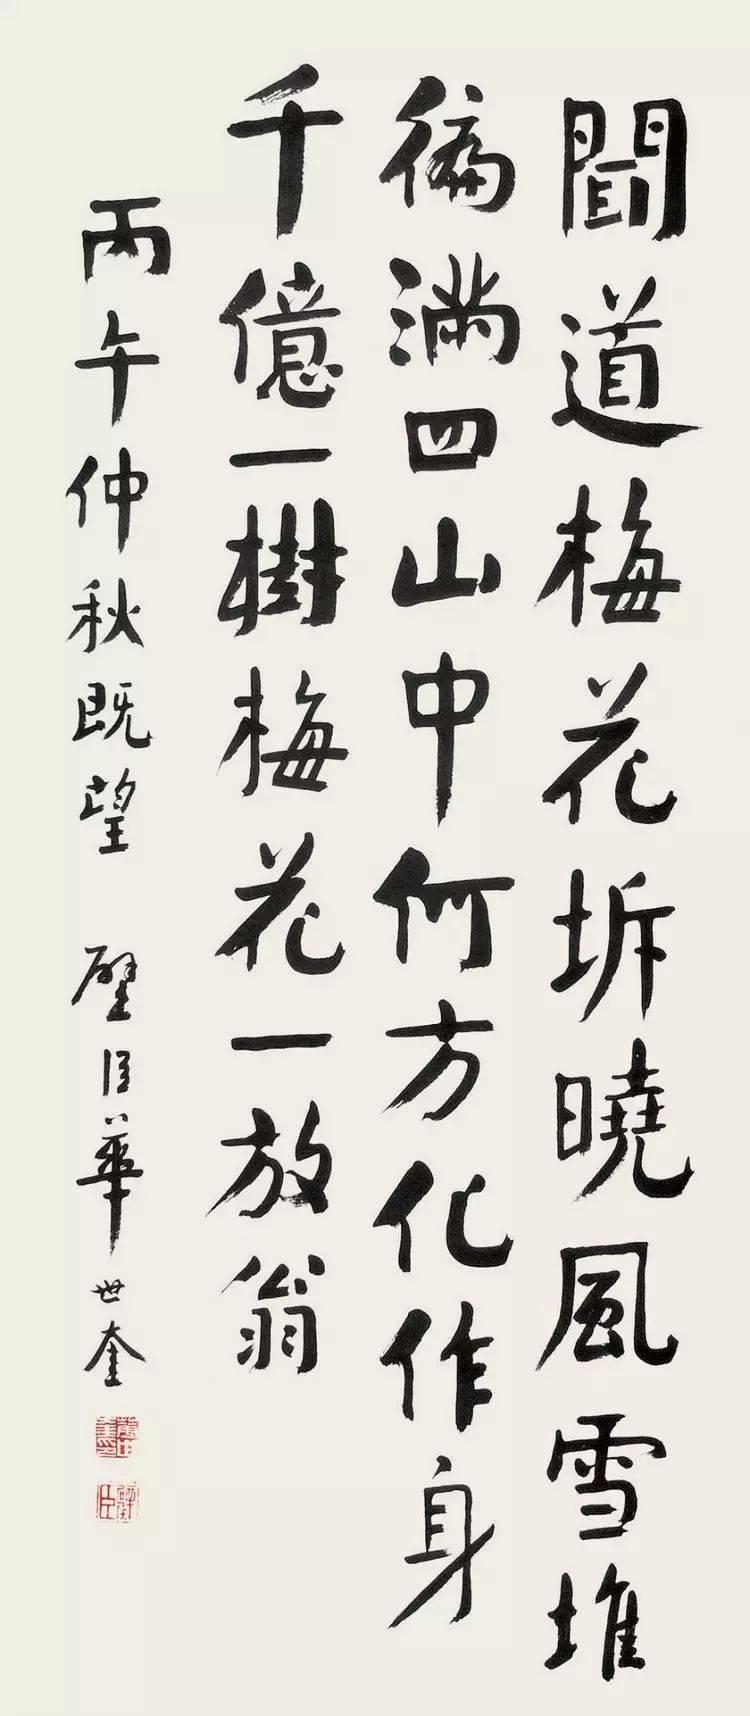 聞道梅花坼曉風雪堆
徧滿四山中何方化作身
千億一樹梅花一放翁
丙午仲秋既望 璧臣華世奎
璧臣